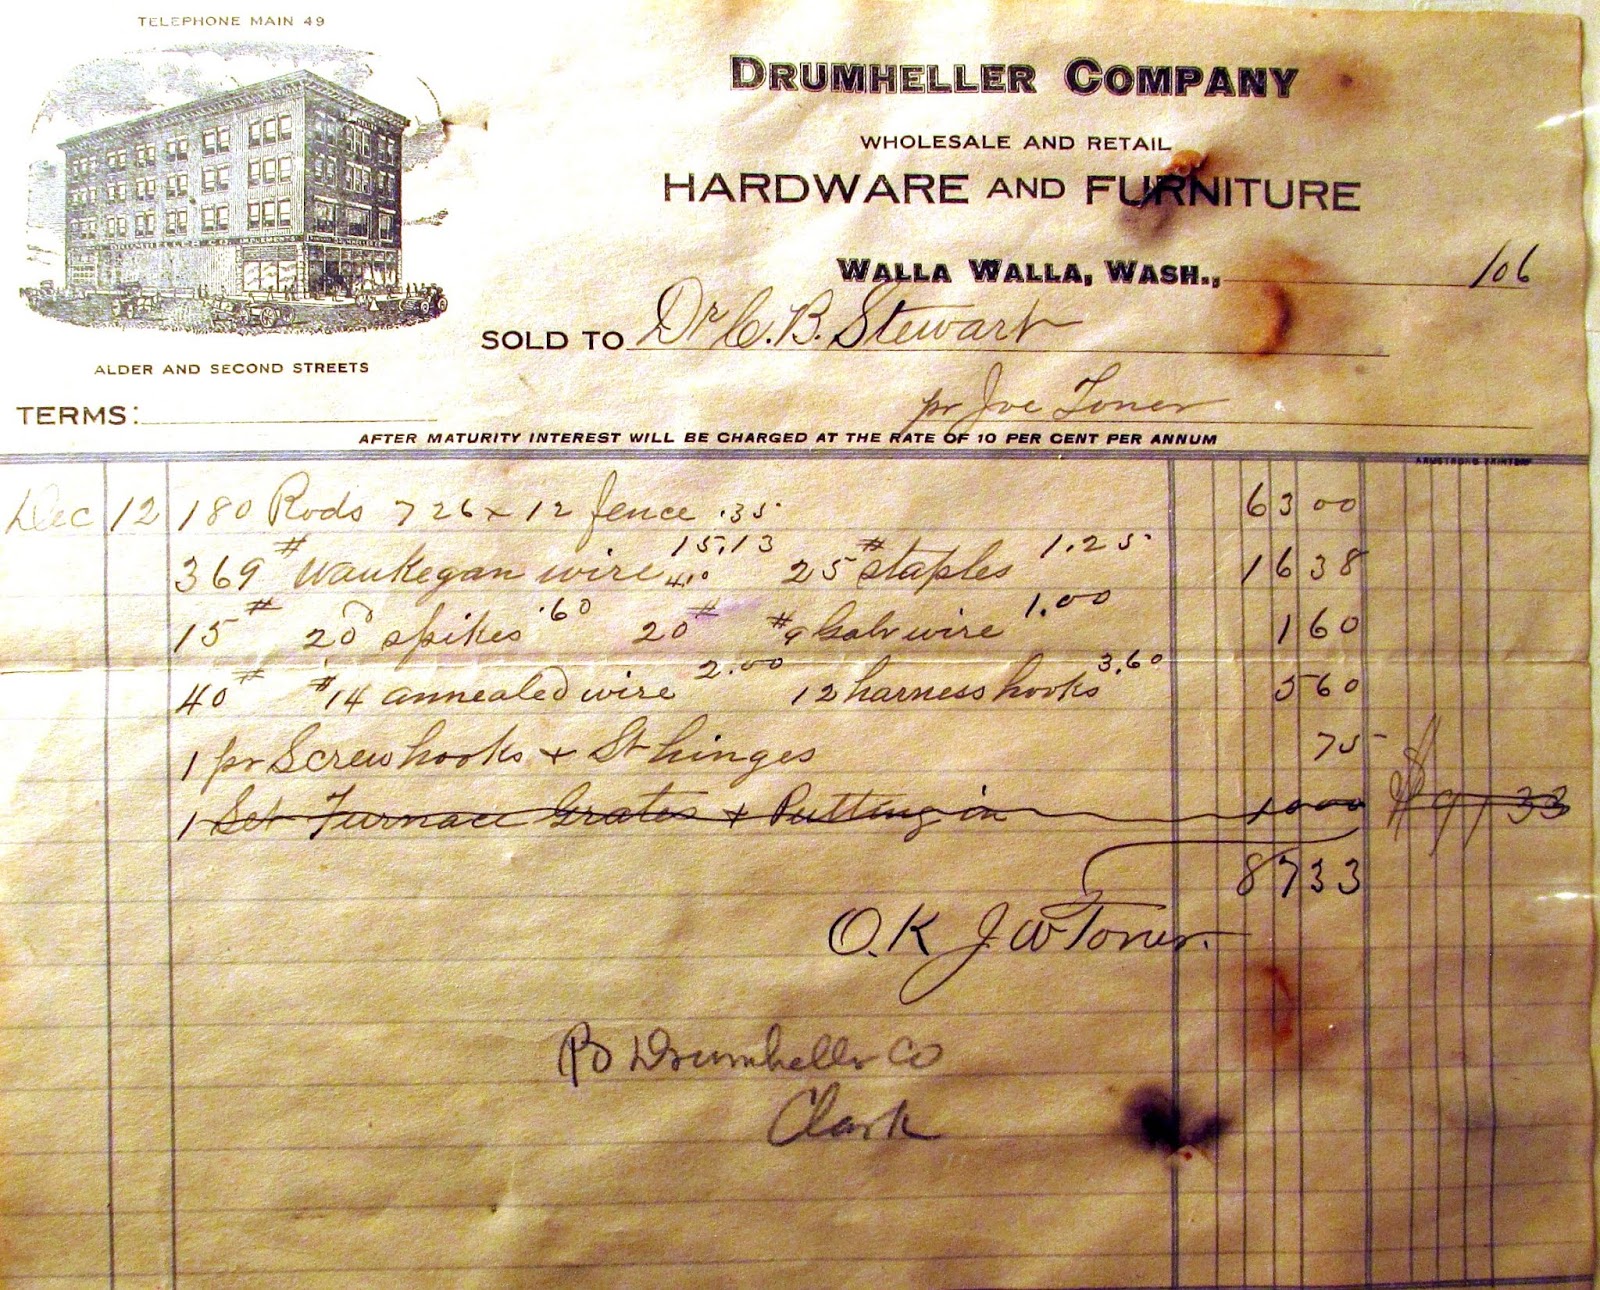 TELEPHONE MAIN 49
DRUMHELLER COMPANY
WHOLESALE AND RETAIL
HARDWARE AND FURNITURE
WALLA WALLA, WASH., 106
SOLD TO Dr C. B. Stewart
ALDER AND SECOND STREETS
pr Joe Toner
TERMS:
AFTER MATURITY INTEREST WILL BE CHARGED AT THE RATE OF 10 PER CENT PER ANNUM
ARMSTRONG PRINTERY
Dec 12 180 Rods 726 x 12 fence .35 63 00
369 # Waukegan wire 4.10 15.13 25 # staples 1.25 16 38
15 # 20d spikes .60 20 # #9 Galv wire 1.00 1 60
40 # #14 annealed wire 2.00 12 harness hooks 3.60 5 60
1 pr Screw hooks + St hinges 75
1 Set Furnace Grates + Putting in 10 00 $97 33
87 33
O.K J. W Toner.
Drumheller Co
Clark